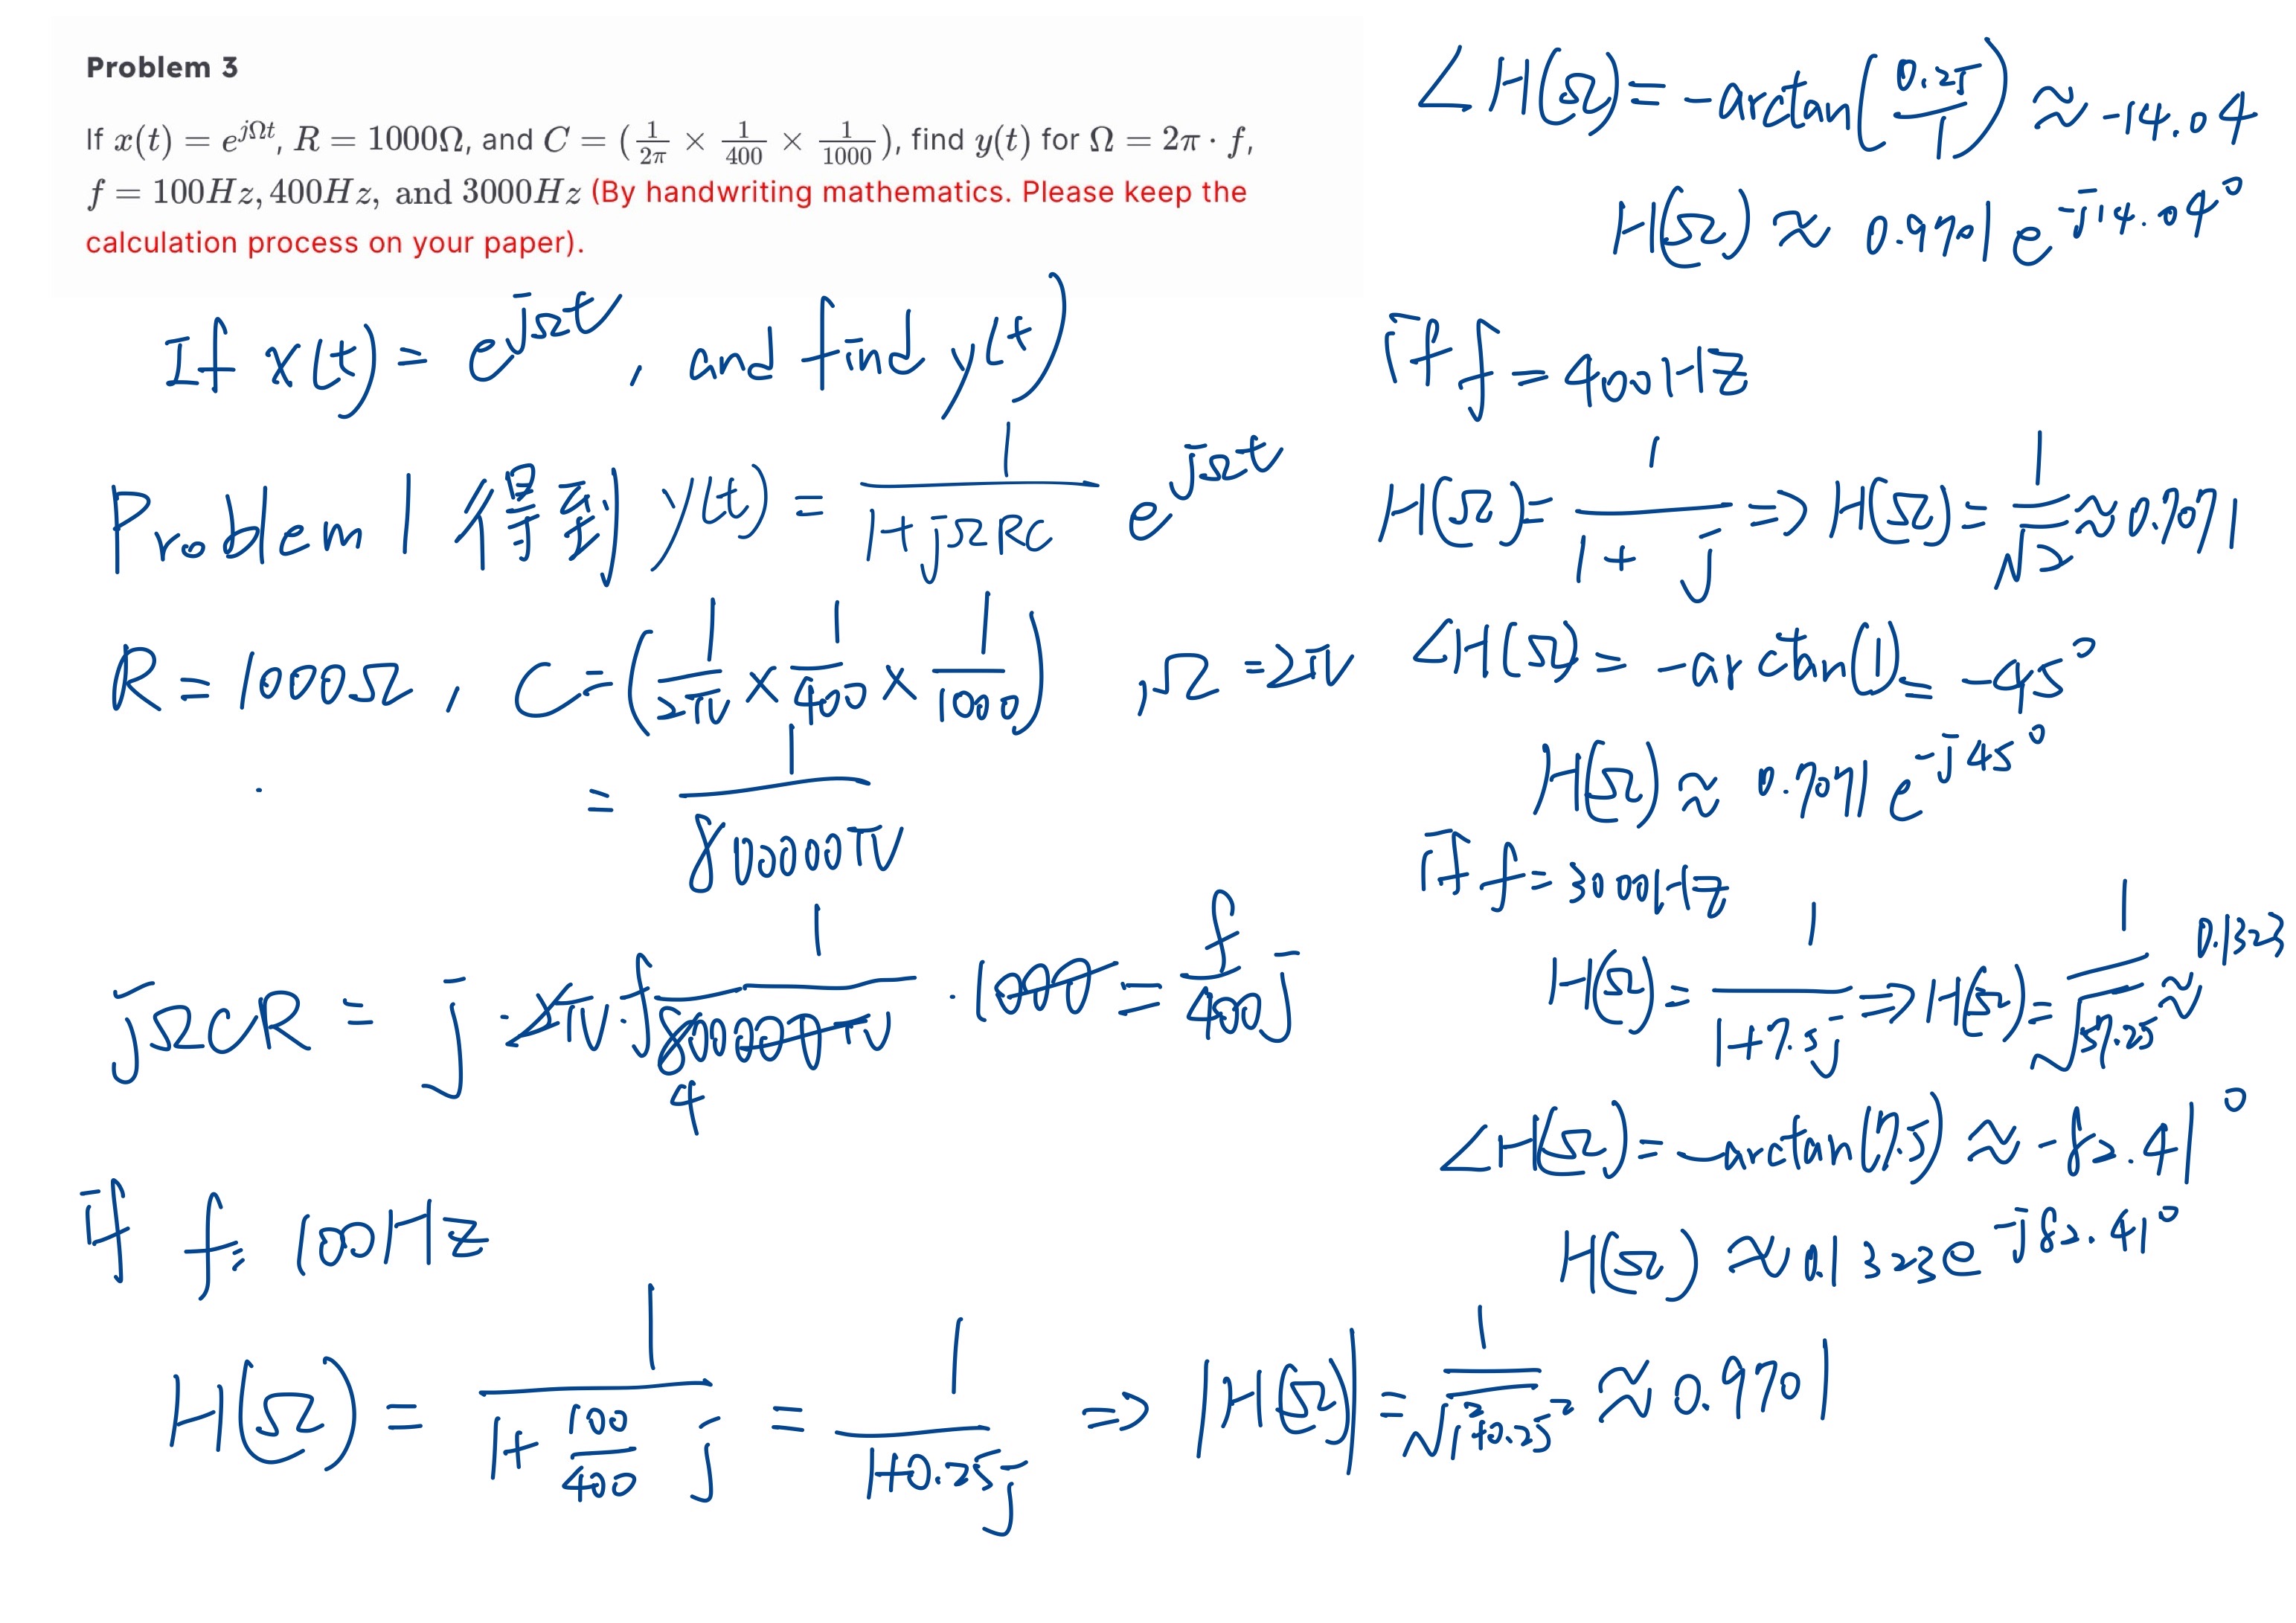 Problem 3
If x(t) = e^{jΩt}, R = 1000Ω, and C = (1/2π × 1/400 × 1/1000), find y(t) for Ω = 2π · f,
f = 100Hz, 400Hz, and 3000Hz (By handwriting mathematics. Please keep the
calculation process on your paper).
If x(t) = e^{jΩt}, and find y(t)
Problem 1 得到 y(t) = 1/(1+jΩRC) e^{jΩt}
R = 1000Ω, C = (1/2π × 1/400 × 1/1000), Ω = 2π
= 1/800000π
jΩCR = j · 2π · f 1/800000π · 1000 = f/400 j
4
if f = 100Hz
H(Ω) = 1/(1+ 100/400 j) = 1/(1+0.25j) ⇒ |H(Ω)| = 1/√(1²+0.25²) ≈ 0.9701
∠H(Ω) = -arctan(0.25/1) ≈ -14.04
H(Ω) ≈ 0.9701 e^{-j14.04°}
if f = 400Hz
H(Ω) = 1/(1+j) ⇒ H(Ω) = 1/√2 ≈ 0.7071
∠H(Ω) = -arctan(1) = -45°
H(Ω) ≈ 0.7071 e^{-j45°}
if f = 3000Hz
H(Ω) = 1/(1+7.5j) ⇒ H(Ω) = 1/√57.25 ≈ 0.1323
∠H(Ω) = -arctan(7.5) ≈ -82.41°
H(Ω) ≈ 0.1323e^{-j82.41°}